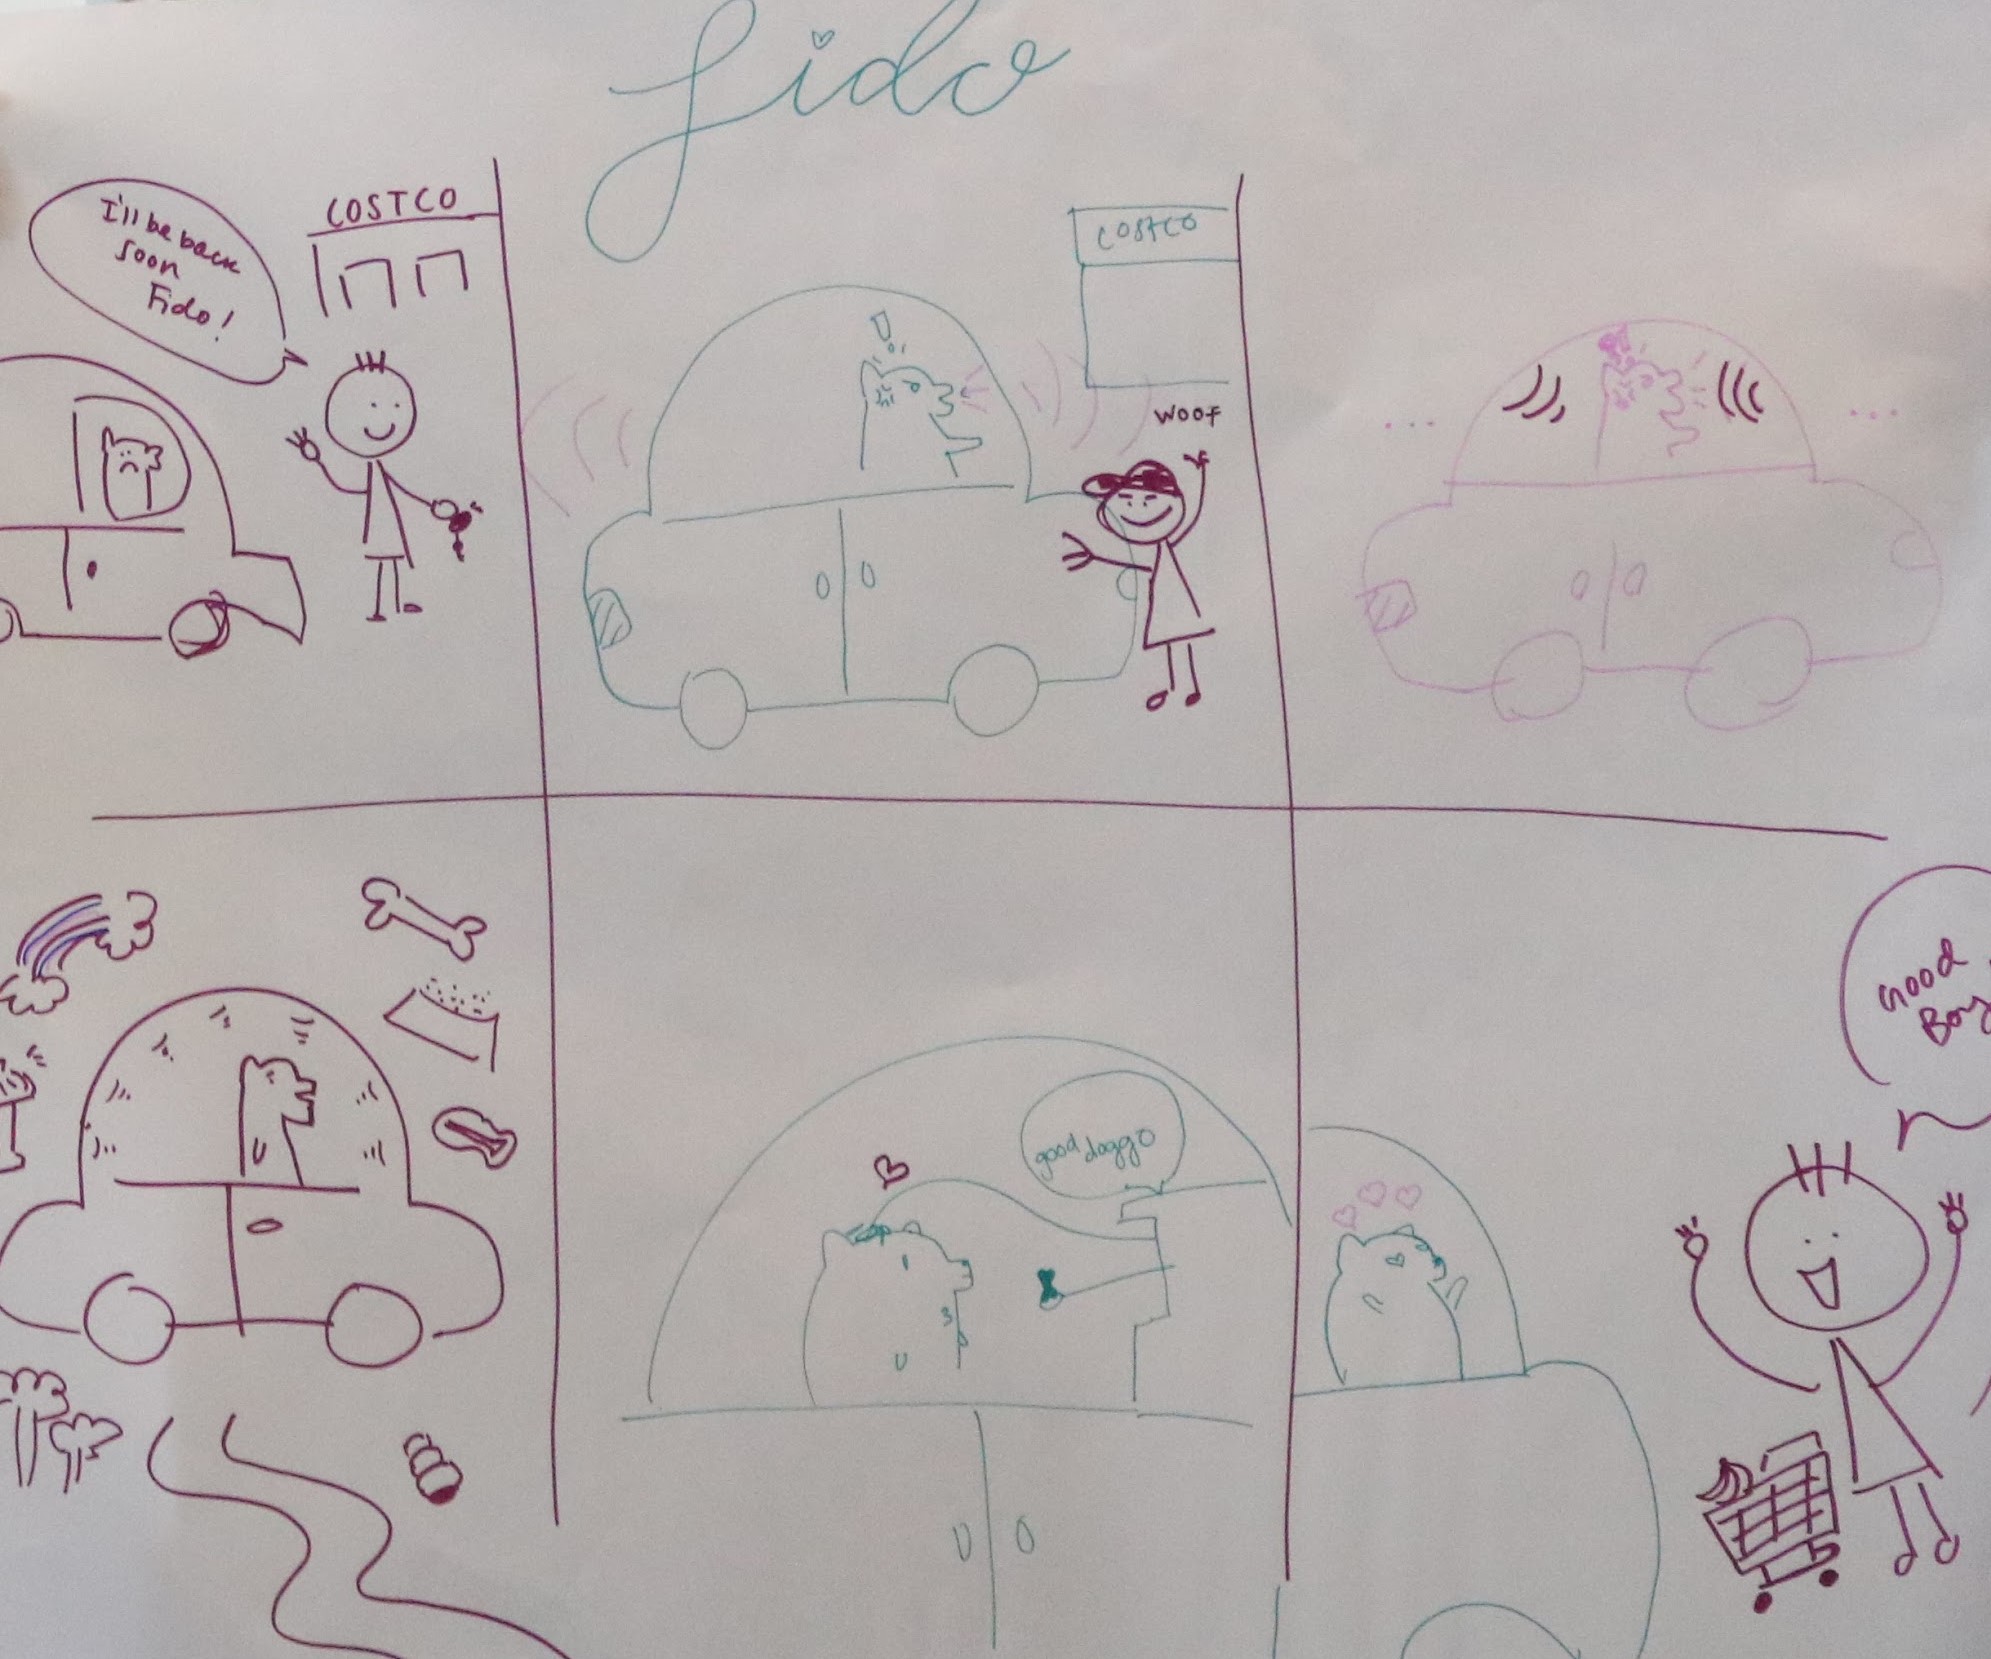 fido
I'll be back
soon
Fido!
COSTCO
COSTCO
WOOF
good doggo
Good
Boy